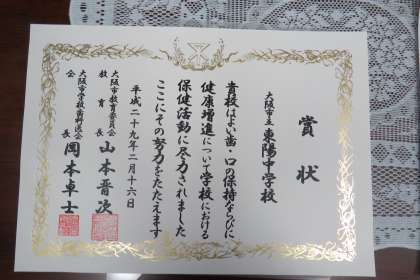 賞状
大阪市立 東陽中学校
貴校はよい歯・口の保持ならびに
健康増進について学校における
保健活動に尽力されました
ここにその努力をたたえます
平成二十九年二月十六日
大阪市教育委員会
教育長 山本晋次
大阪市学校歯科医会
会長 岡本卓士